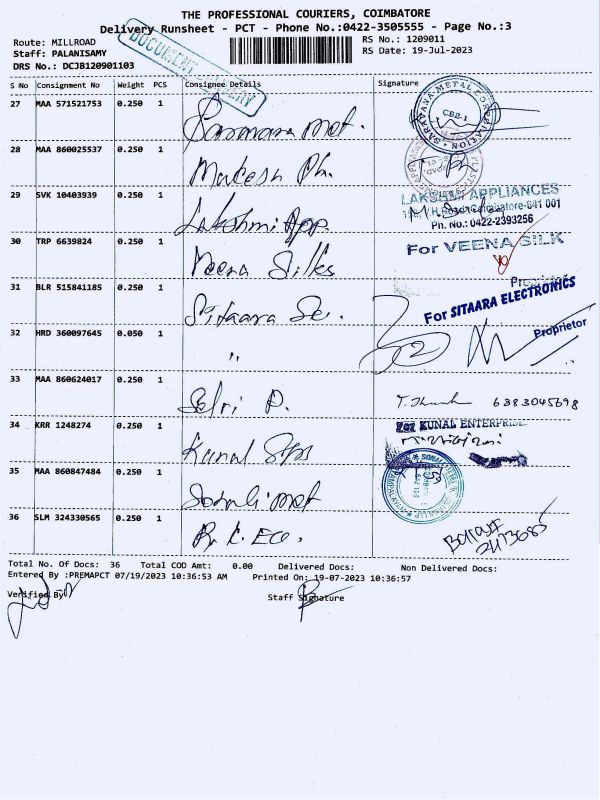 THE PROFESSIONAL COURIERS, COIMBATORE
Delivery Runsheet - PCT - Phone No.:0422-3505555 - Page No.:3
Route: MILLROAD
RS No.: 1209011
Staff: PALANISAMY
RS Date: 19-Jul-2023
DRS No.: DCJB120901103
DOCUMENT
S No Consignment No Weight PCS Consignee Details Signature
27 MAA 571521753 0.250 1
SARAVANA METAL CORPORATION
CBE-1
28 MAA 860025537 0.250 1 Mukesh Ph.
29 SVK 10403939 0.250 1 Lakshmi App.
LAKSHMI APPLIANCES
Coimbatore-641 001
Ph. No.: 0422-2393256
30 TRP 6639824 0.250 1 Meena Silks
For VEENA SILK
Proprietor
31 BLR 515841185 0.250 1 Sitaara Se.
For SITAARA ELECTRONICS
Proprietor
32 HRD 360097645 0.050 1 "
33 MAA 860624017 0.250 1 Selvi P.
6383045698
34 KRR 1248274 0.250 1 Kunal
For KUNAL ENTERPRISE
35 MAA 860847484 0.250 1 Sonali Met
36 SLM 324330565 0.250 1 R. K. Ecc.
Total No. Of Docs: 36 Total COD Amt: 0.00 Delivered Docs: Non Delivered Docs:
Entered By :PREMAPCT 07/19/2023 10:36:53 AM Printed On: 19-07-2023 10:36:57
Verified By
Staff Signature